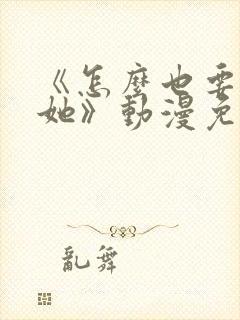 《怎麼也要
她》動漫免
亂舞